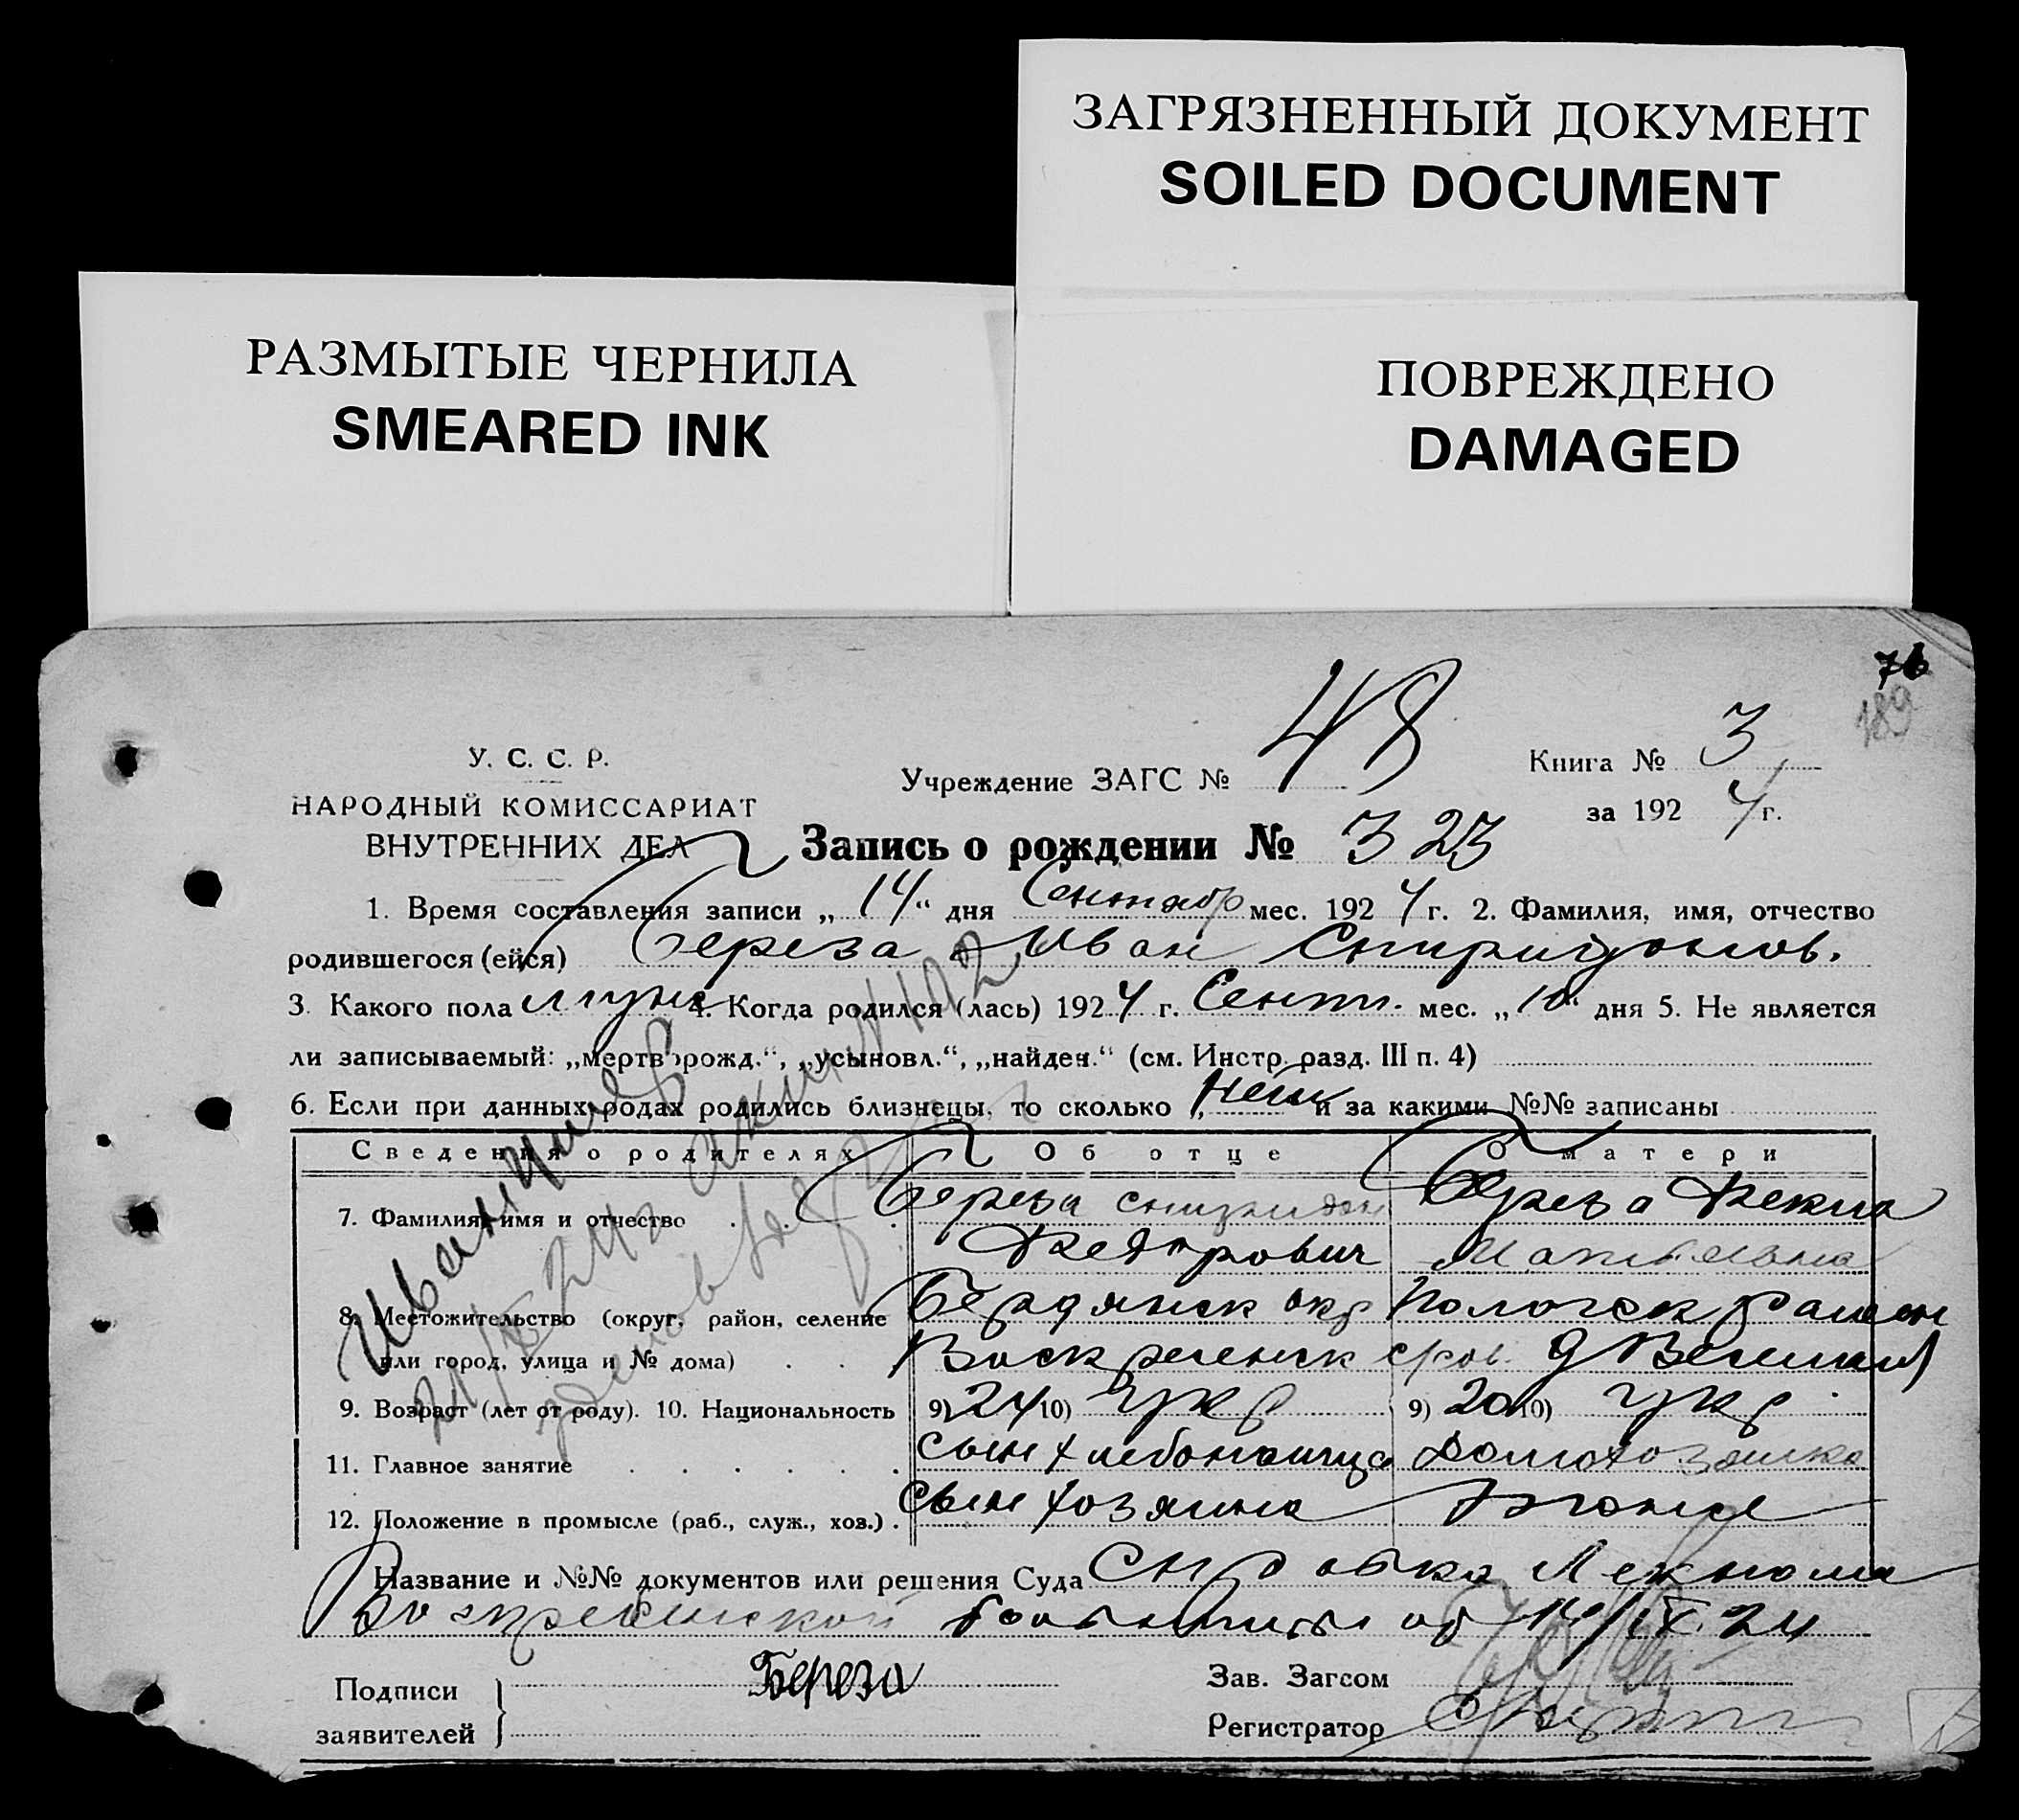 ЗАГРЯЗНЕННЫЙ ДОКУМЕНТ
SOILED DOCUMENT
РАЗМЫТЫЕ ЧЕРНИЛА
SMEARED INK
ПОВРЕЖДЕНО
DAMAGED
76
189
У. С. С. Р.
НАРОДНЫЙ КОМИССАРИАТ
ВНУТРЕННИХ ДЕЛ
Учреждение ЗАГС № 48
Книга № 3
за 1924 г.
Запись о рождении № 323
1. Время составления записи „14“ дня Сентябр мес. 1924 г. 2. Фамилия, имя, отчество
родившегося (ейся) Береза Иван Спиридонов.
3. Какого пола муж 4. Когда родился (лась) 1924 г. Сент. мес. „10“ дня 5. Не является
ли записываемый: „мертворожд.“, „усыновл.“, „найден.“ (см. Инстр. разд. III п. 4)
6. Если при данных родах родились близнецы, то сколько нет и за какими №№ записаны
Сведения о родителях Об отце О матери
7. Фамилия, имя и отчество Береза Береза Фекла
8. Местожительство (округ, район, селение Бердянск окр Пологск район
или город, улица и № дома) Воскресенск
9. Возраст (лет от роду). 10. Национальность 9) 24 10) укр 9) 20 10) укр.
11. Главное занятие сын хлебопашца домохозяйка
12. Положение в промысле (раб., служ., хоз.) сын хозяина
Название и №№ документов или решения Суда Справка
от 10/IX 24
Подписи
заявителей
Береза
Зав. Загсом
Регистратор